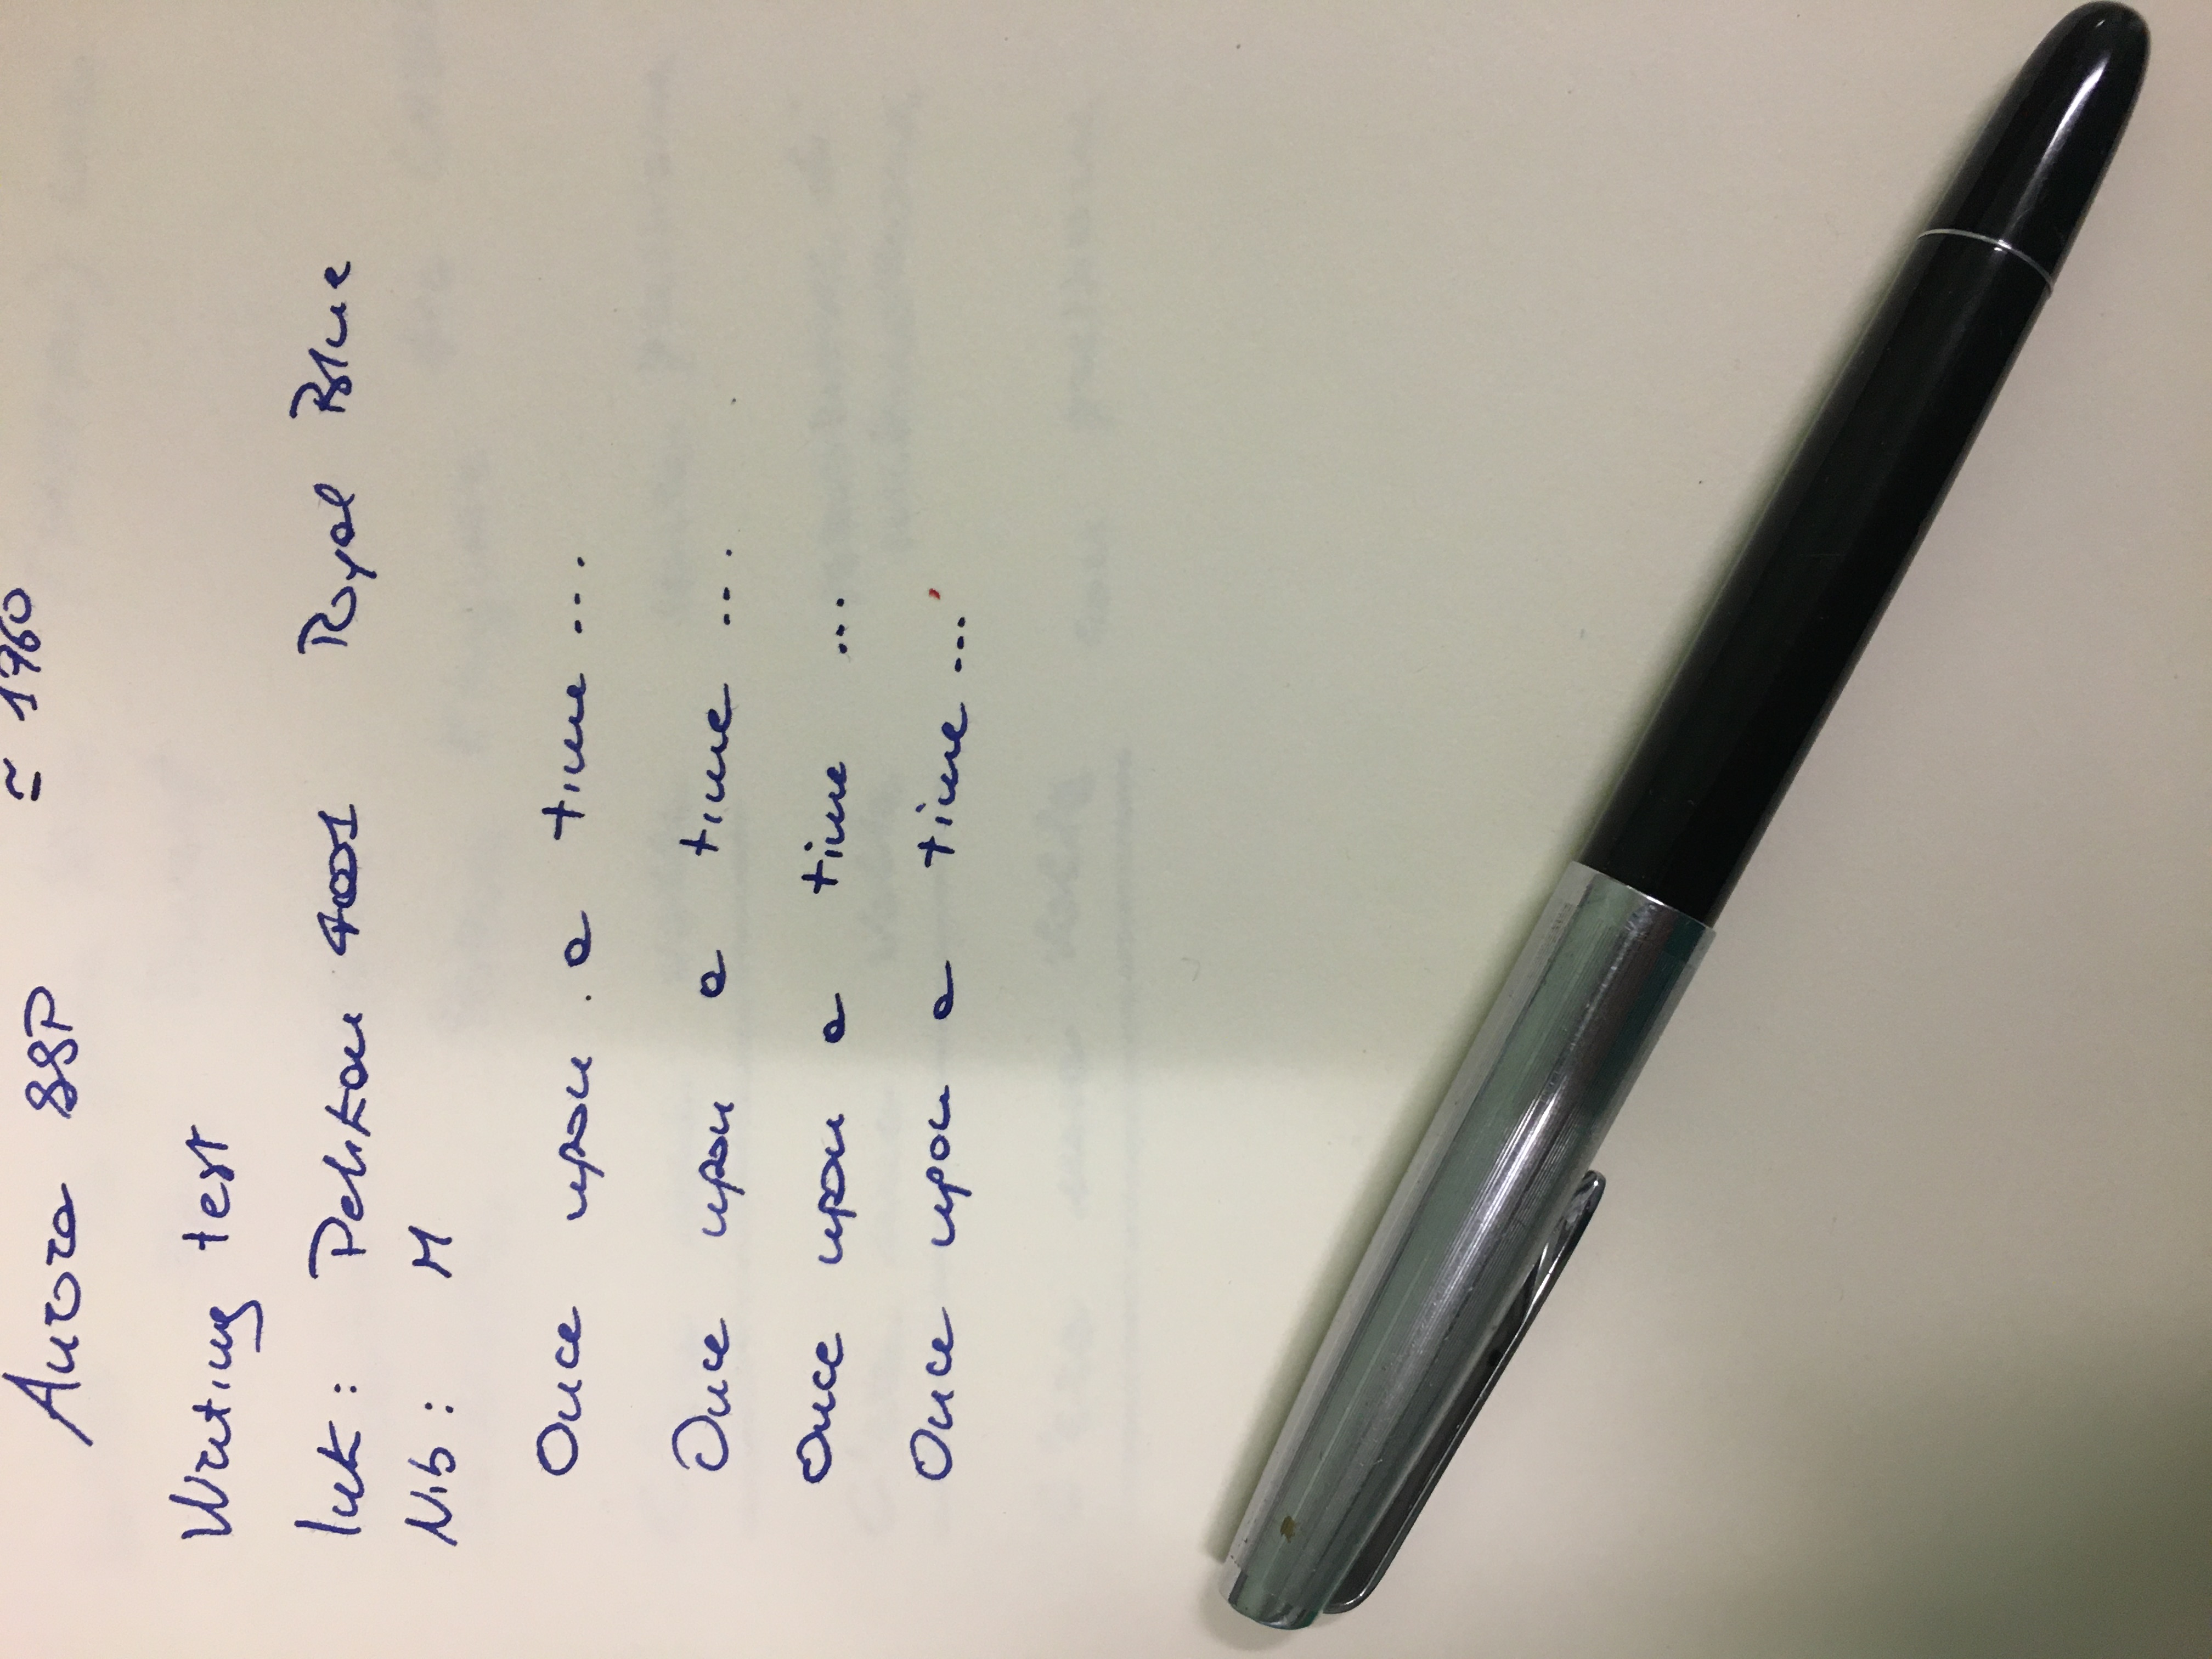 Aurora 88P ≃ 1960
Writing test
Ink: Pelikan 4001 Royal Blue
Nib: M
Once upon a time....
Once upon a time....
Once upon a time ...
Once upon a time...